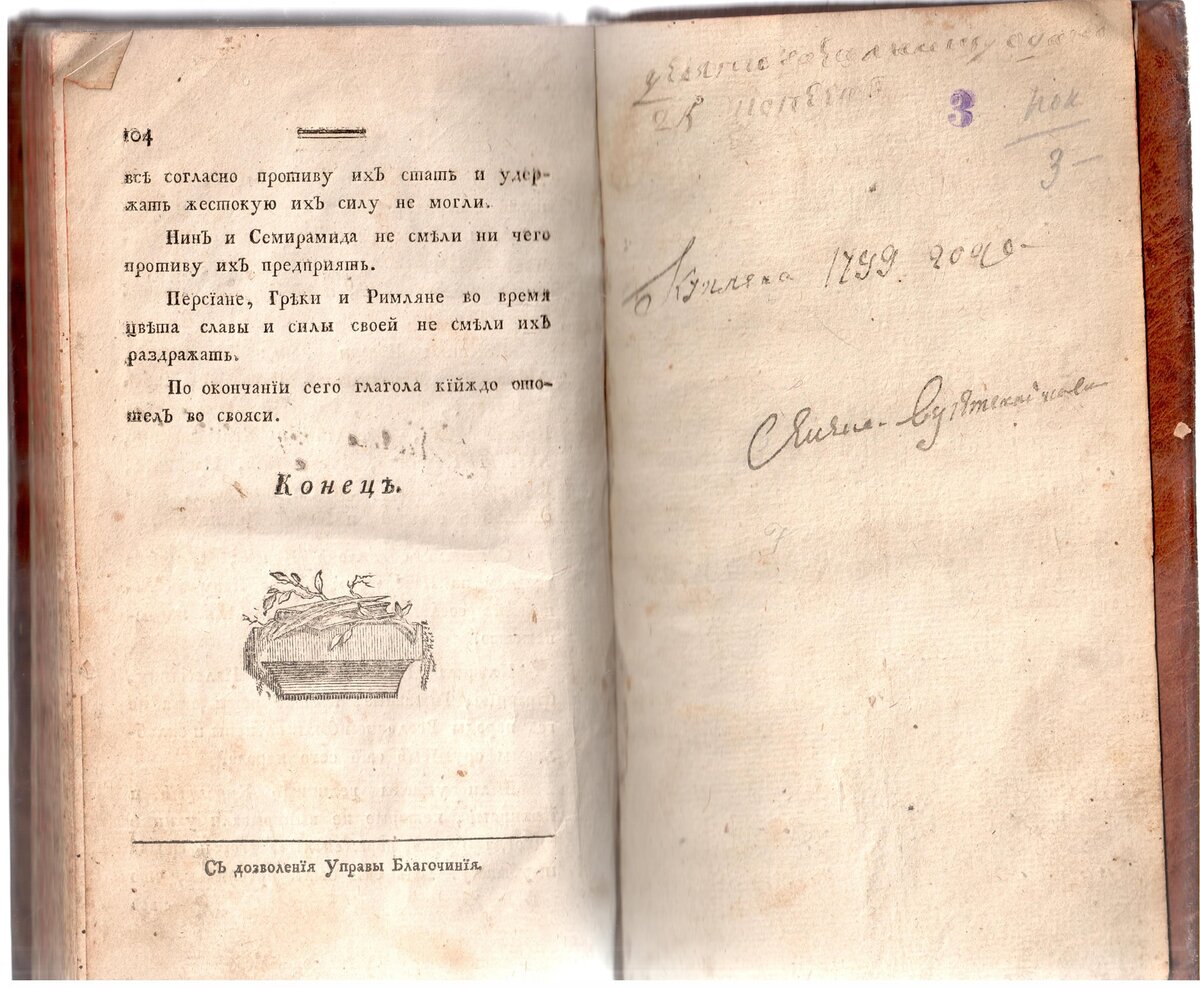 104
всѣ согласно противу ихЪ стать и удер-
жать жестокую ихЪ силу не могли.
НинЪ и Семирамида не смѣли ни чего
противу ихЪ предприять.
Персїане, Грѣки и Римляне во время
цвѣта славы и силы своей не смѣли ихЪ
раздражать.
По окончанїи сего глагола кїйждо ото-
шелЪ во свояси.
КонецЪ.
СЪ дозволенїя Управы Благочинїя.
25
3
3-
Куплена 1799 года